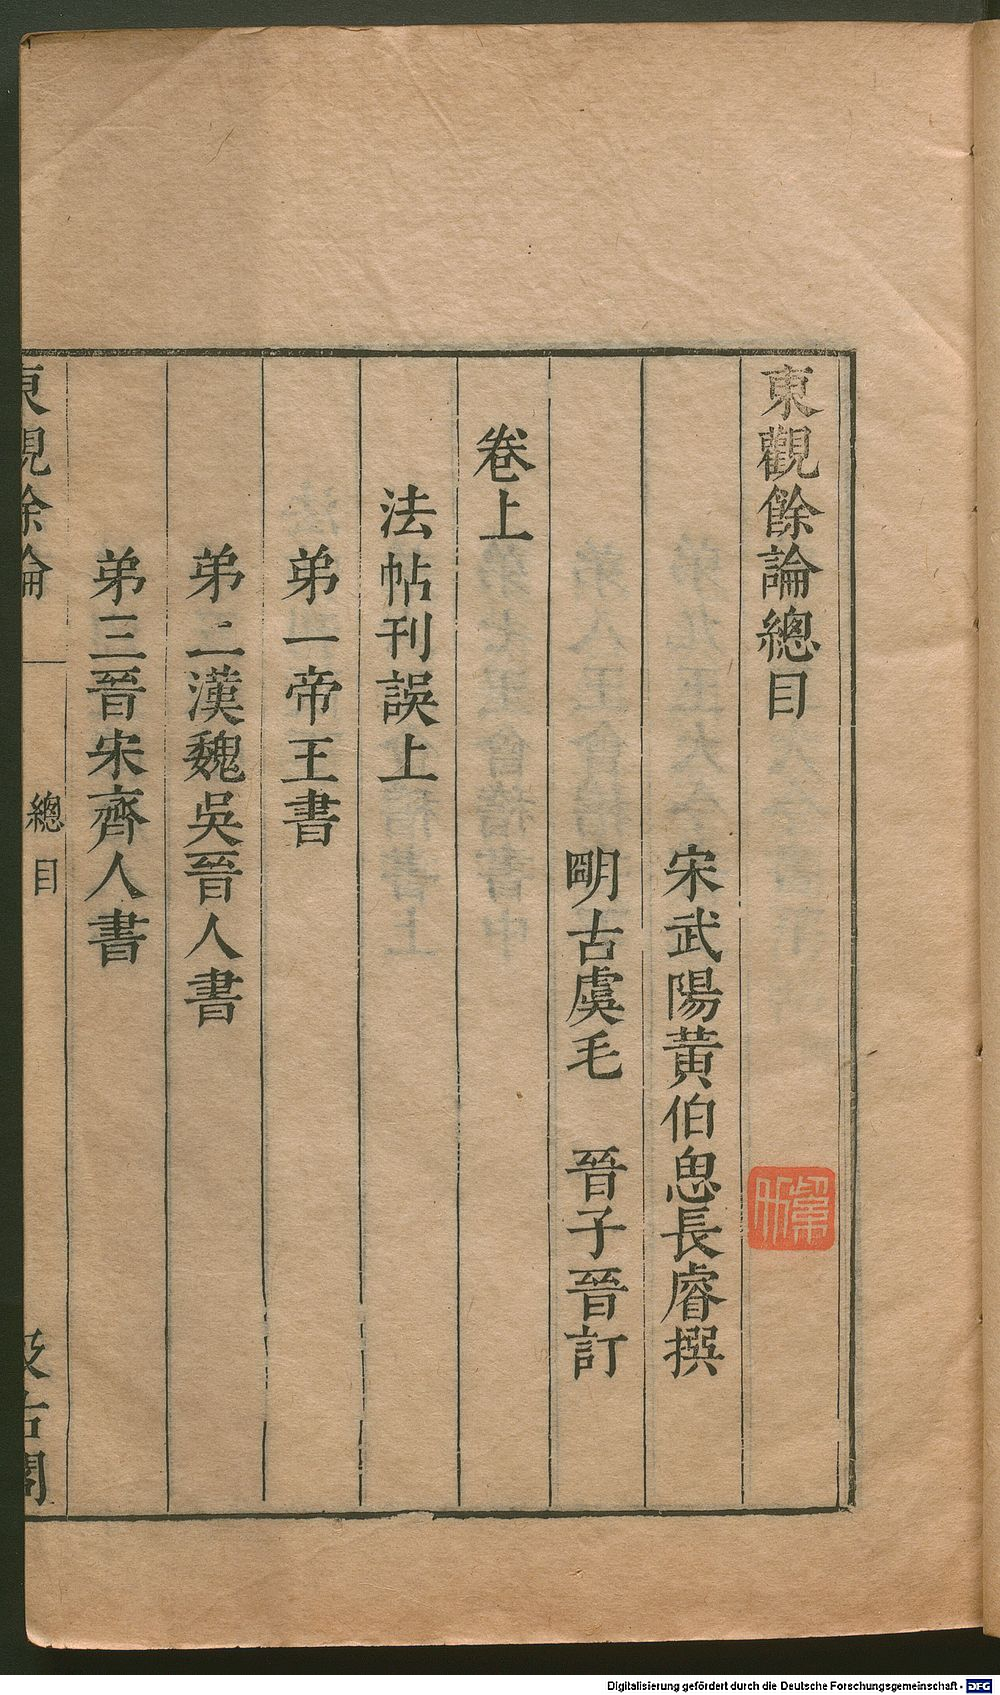 東觀餘論總目
宋武陽黃伯思長睿撰
明古虞毛 晉子晉訂
卷上
法帖刊誤上
弟一帝王書
弟二漢魏吳晉人書
弟三晉宋齊人書
東觀餘論 總目 汲古閣
Digitalisierung gefördert durch die Deutsche Forschungsgemeinschaft - DFG